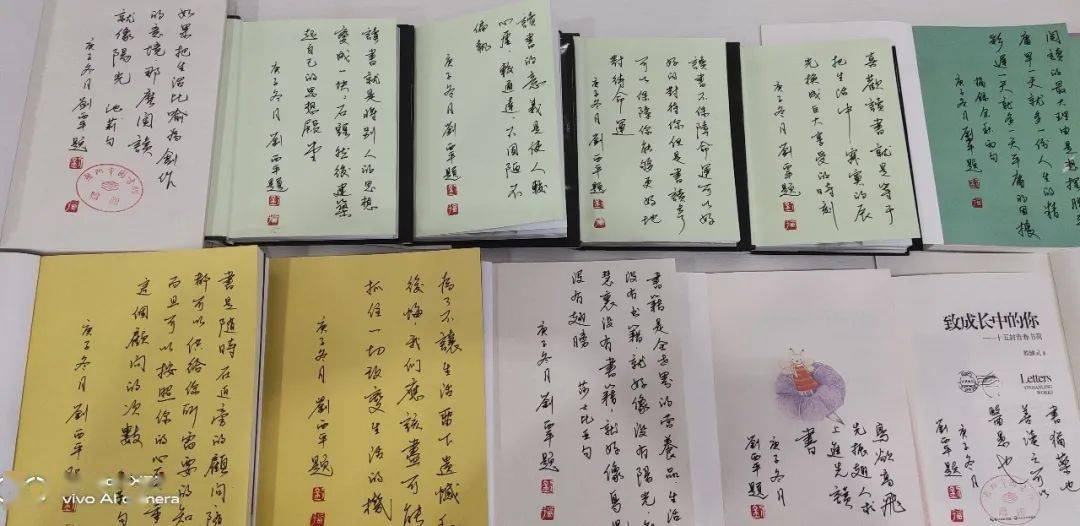 如果把生活比喻為創作
的意境那麼閱讀
就像陽光 池莉句
庚子冬月 劉西平題
讀書就是將別人的思想
變成一塊石頭然後建築
起自己的思想殿堂
庚子冬月 劉西平題
讀書的意義是使人虛
心 較通達 不固陋 不
偏執
庚子冬月 劉西平題
讀書不保障命運可以好
好的對待你但是書讀多
可以保障你能够更好地
對待命運
庚子冬月 劉西平題
喜歡讀書就是等于
把生活中寂寞的辰
光換成巨大享受的時刻
庚子冬月 劉西平題
閱讀的最大理由是想擺脫平
庸早一天就多一份人生的精
彩遲一天就多一天平庸的困擾
摘錄余秋雨句
庚子冬月 劉西平題
書是随時在近旁的顧問随
都可以供給你所需要的知
而且可以按照你的心
這個顧問的次數 句
庚子冬月 劉西平
為了不讓生活留下遺憾和
後悔,我們應該盡可能
抓住一切改變生活的機
庚子冬月 劉西平題
書籍是全世界的营養品生活
没有书籍就好像没有陽光
慧裏没有書籍,就好像鳥
没有翅膀 莎士比亞句
庚子冬月 劉西平題
鳥欲高飛
先振翅人求
上進先讀
書
庚子冬月
劉西平題
致成长中的你
——十五封青春书简
Letters
書猶藥也
善讀之可以
醫愚也
庚子冬月
劉西平題
vivo AI camera